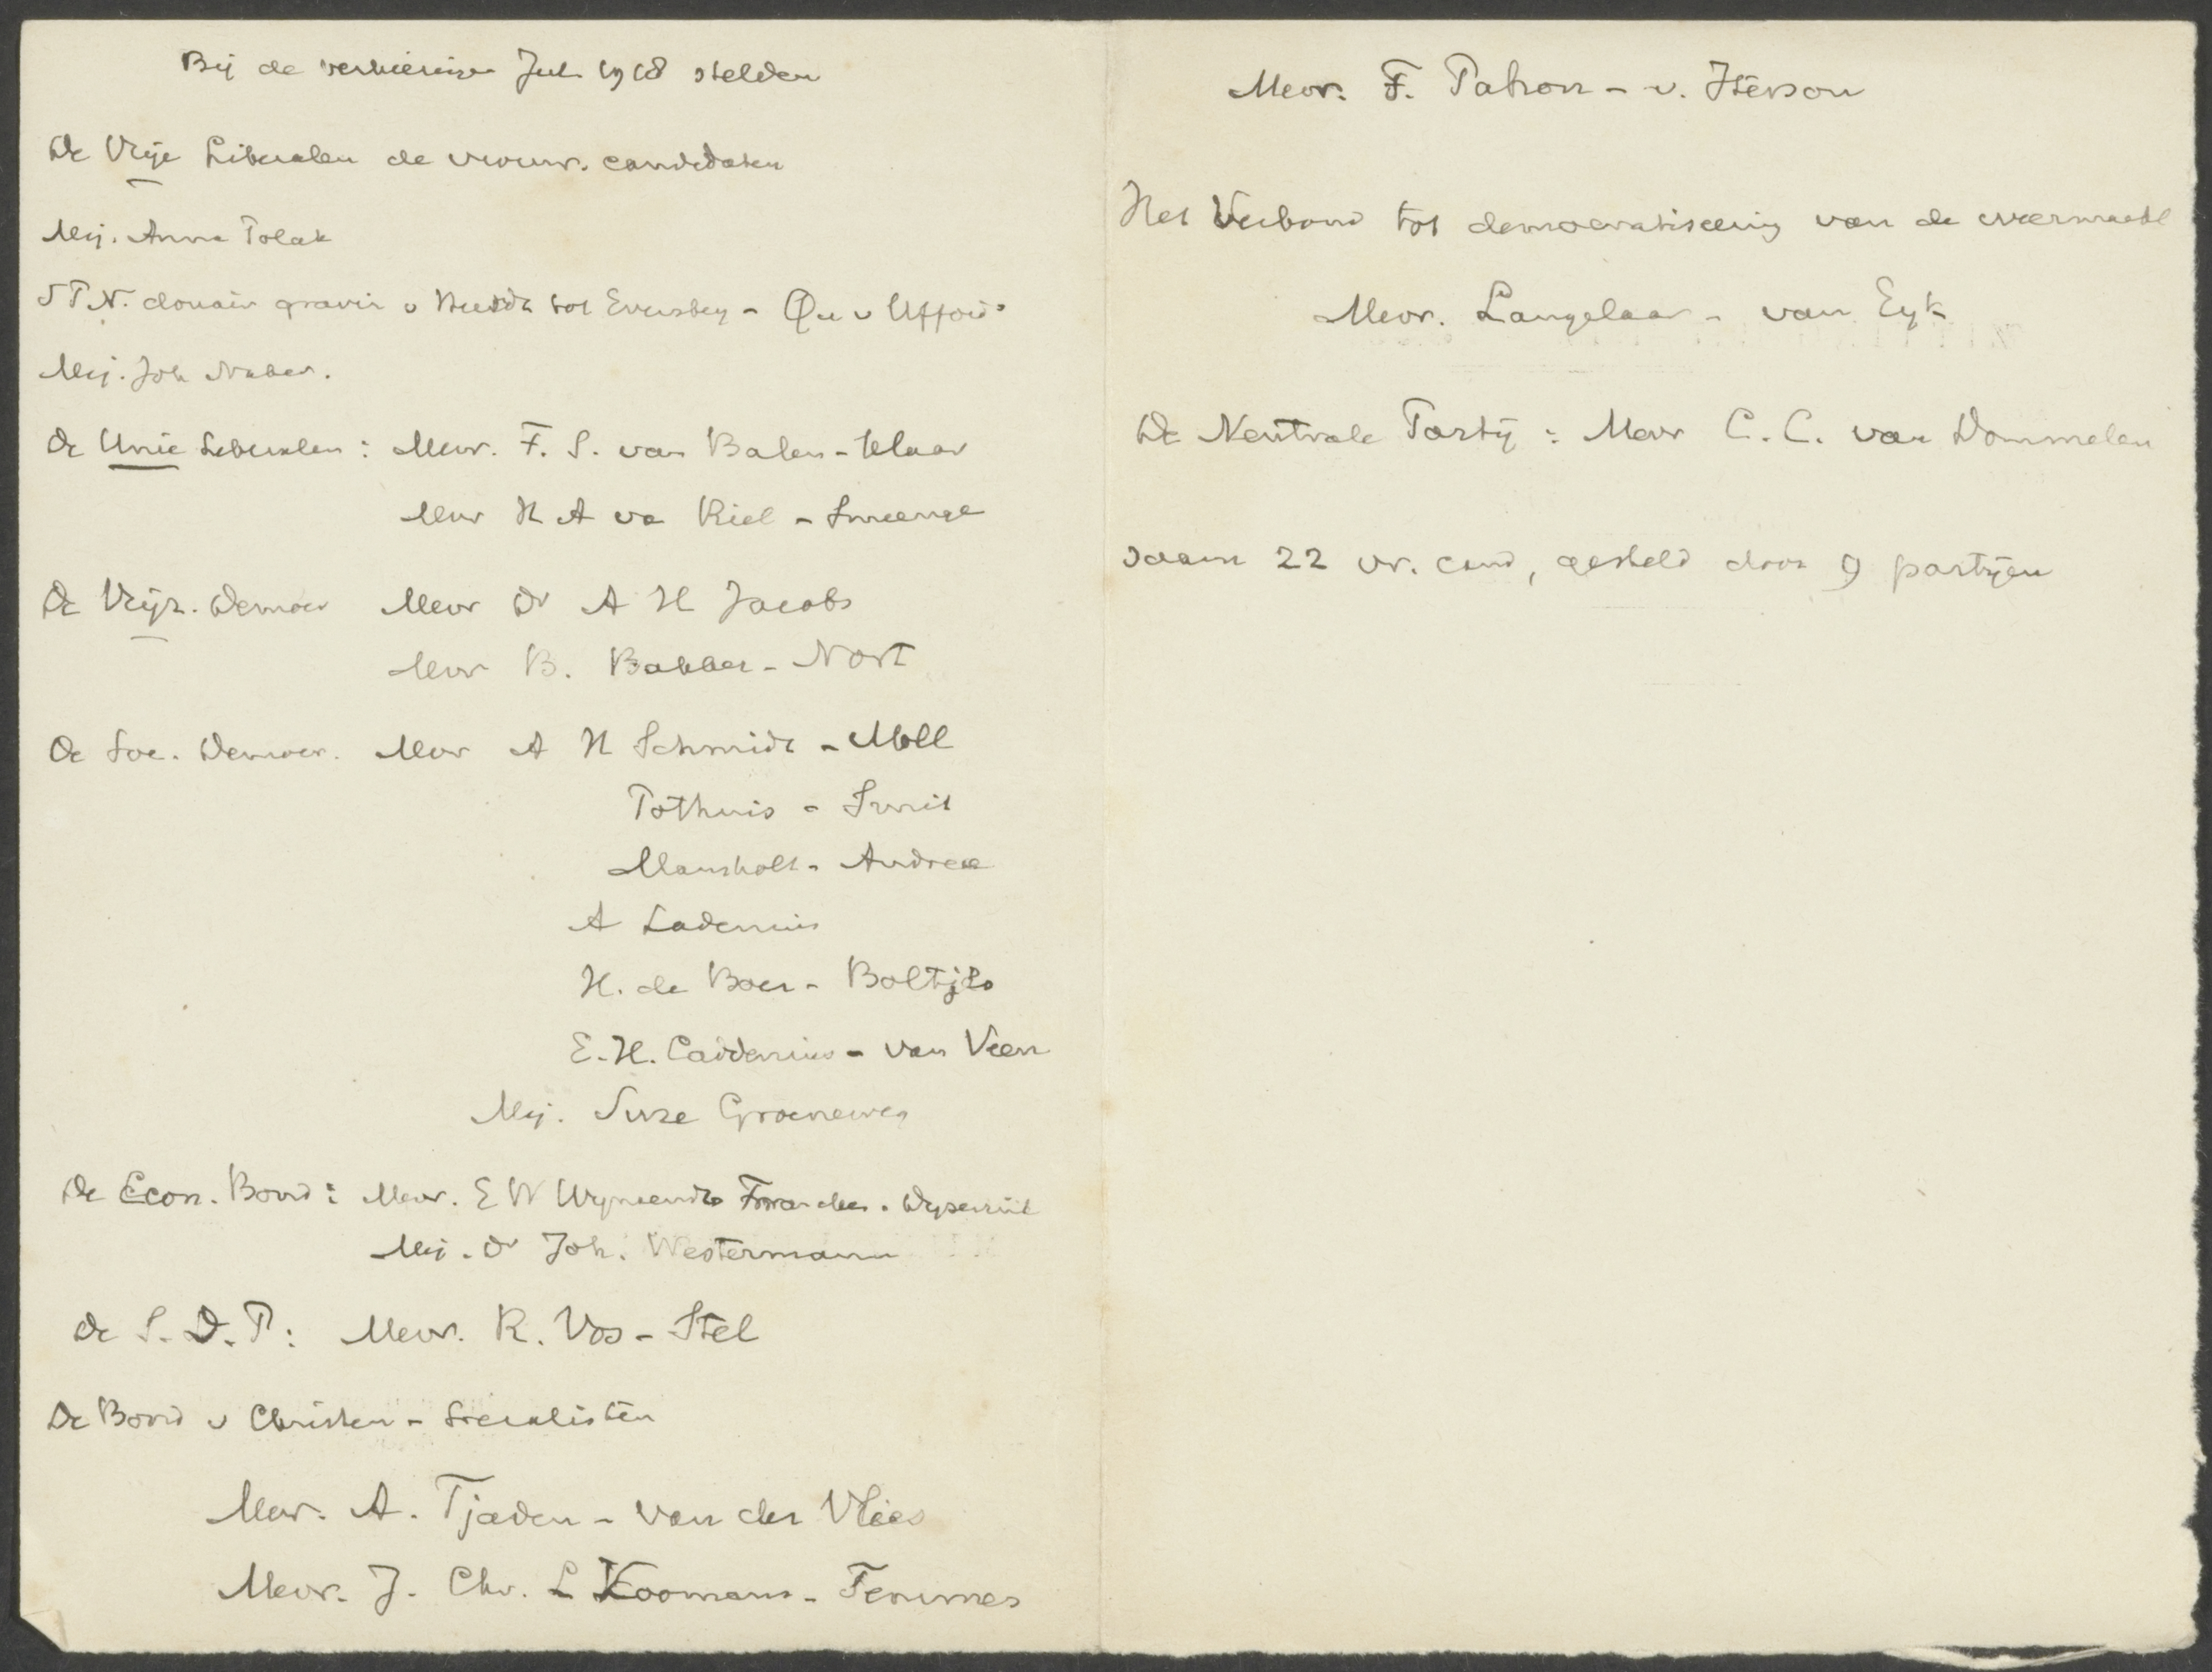 Bij de verkiezingen Juli 1918 stelden
De Vrije Liberalen de vrouw. candidaten
Mej. Anna Polak
douair. gravin v Heerdt tot Eversberg - Qu v Ufford
Mej. Joh Naber.
De Unie Liberalen: Mevr. F. S. van Balen - Klaar
Mevr H A va Riel - Smeenge
De Vrijz. Democr Mevr Dr A H Jacobs
Mevr B. Bakker - Nort
De Soc. Democr. Mevr A H Schmidt - Moll
Pothuis - Smit
Mansholt - Andreae
A Ladenius
H. de Boer - Boltjes
E. H. Caddenius - van Veen
Mej. Suze Groeneweg
De Econ. Bond: Mevr. E W Wijnaendts Francken - Dyserinck
Mej. Dr Joh. Westermann
De S. D. P: Mevr. R. Vos - Stel
De Bond v Christen - Socialisten
Mevr. A. Tjaden - van der Vlies
Mevr. J. Chr. L Koomans - Temmes
Mevr. F. Patron - v. Iterson
Het Verbond tot democratiseering van de weermacht
Mevr. Langelaar - van Eyk
De Neutrale Partij: Mevr C. C. van Dommelen
saam 22 vr. cand, gesteld door 9 partijen